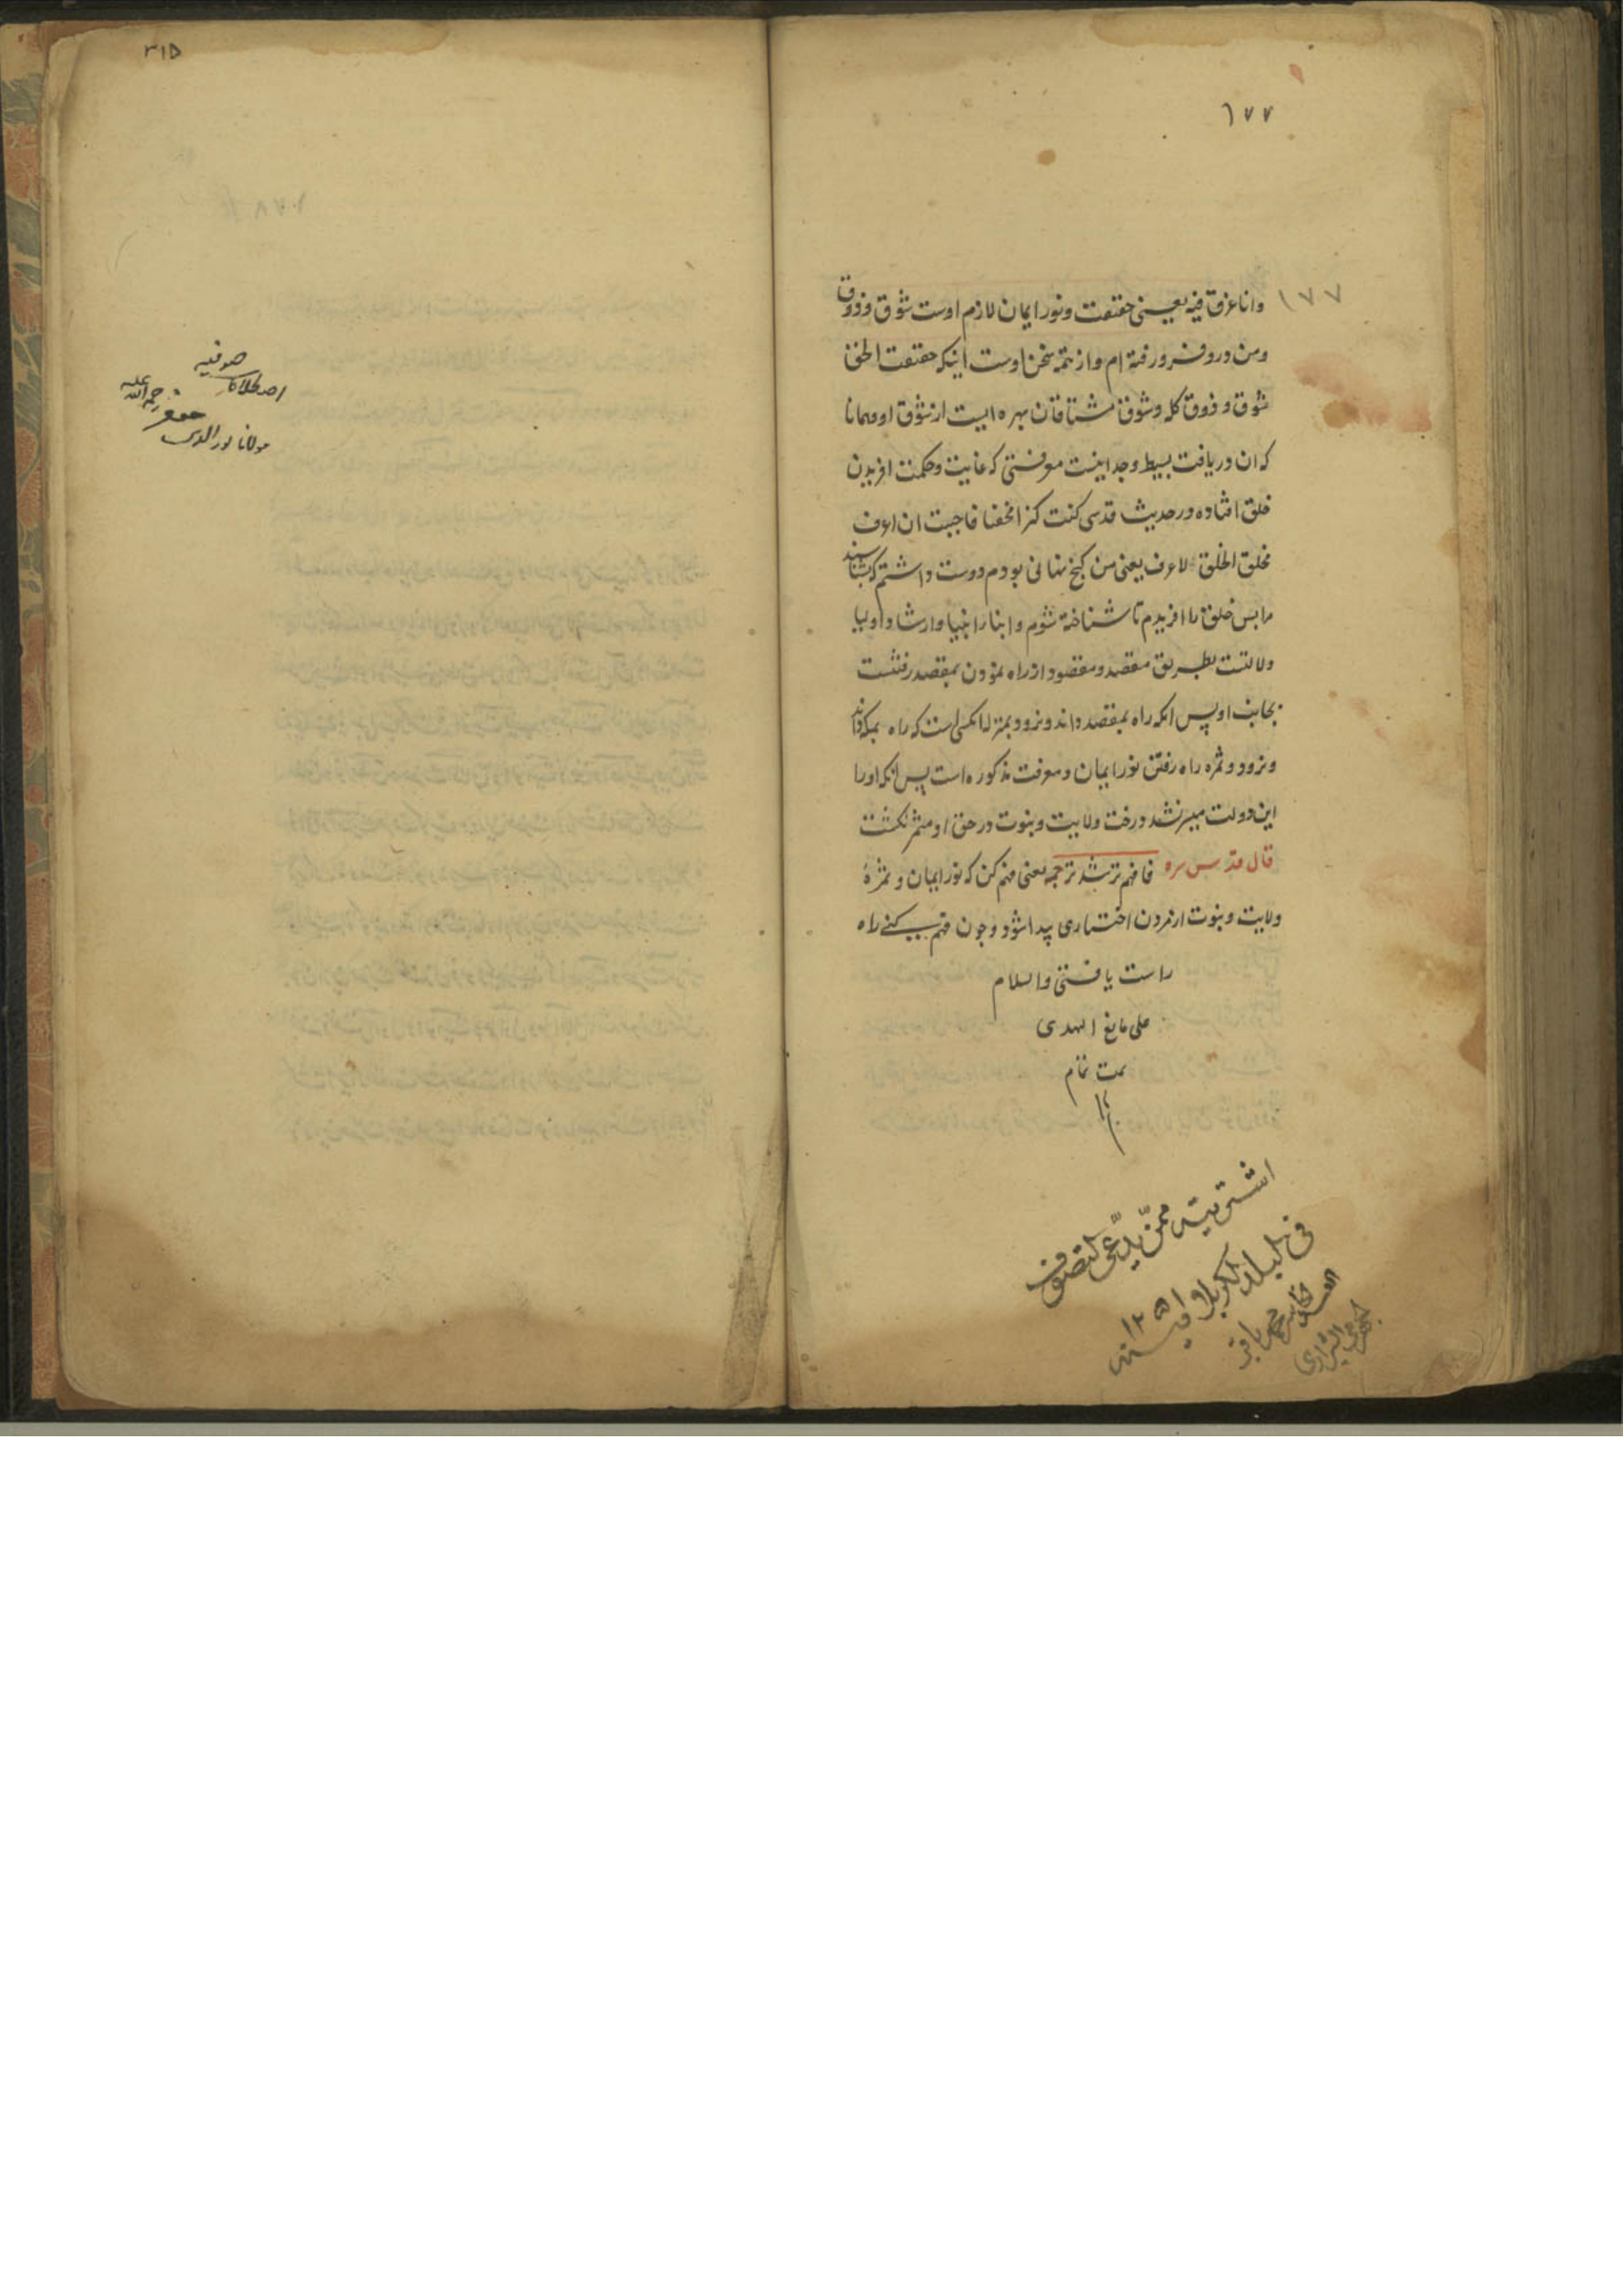 ١٧٧
١٧٧
وانا غرق فیه یعنی حقیقت و نور ایمان لازم اوست شوق و ذوق
ومن درو فرو رفته ام و از تتمه سخن اوست اینکه حقیقت الحق
شوق و ذوق کله و شوق مشتاقان بهره ایست از شوق او و همانا
که ان دریافت بسیط وجدانیست معرفتی که غایت و حکمت افریدن
خلق افتاده در حدیث قدسی کنت کنزا مخفیا فاحببت ان اعرف
فخلق الخلق لاعرف یعنی من کنج نهانی بودم دوست داشتم که بشناسند
مرا بس خلق را افریدم تا شناخته شوم و انبیا وارشاد اولیا
دلالتست بطریق مقصد و مقصود از راه نمودن بمقصد رفتنست
بجانب او پس انکه راه بمقصد داند و نرود بمنزله انکسی است که راه بمکه داند
و نرود و ثمره راه رفتن نور ایمان و معرفت مذکوره است پس انکه اورا
این دولت میسر نشد درخت ولایت و نبوت در حق او مثمر نکشت
قال قدس سره فافهم ترشد ترجمه یعنی فهم کن که نور ایمان و ثمرهٔ
ولایت و نبوت از مردن اختیاری پیدا شود و چون فهم کنی راه
راست یافتی والسلام
علی تابع الهدی
تمت تمام
اشتریته ممن یدعی التصوف
فی بلد کربلا فی سنه ١٢٥١
محمد باقر
٣١٥
اصطلاحات صوفیه
مولانا نورالدین جعفر رحمه الله علیه